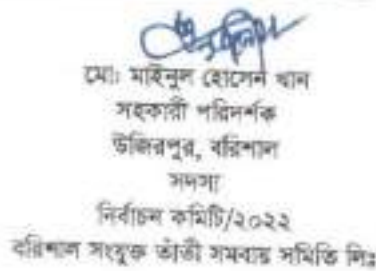 মো: মাইনুল হোসেন খান
সহকারী পরিদর্শক
উজিরপুর, বরিশাল
সদস্য
নির্বাচন কমিটি/২০২২
বরিশাল সংযুক্ত তাঁতী সমবায় সমিতি লিঃ